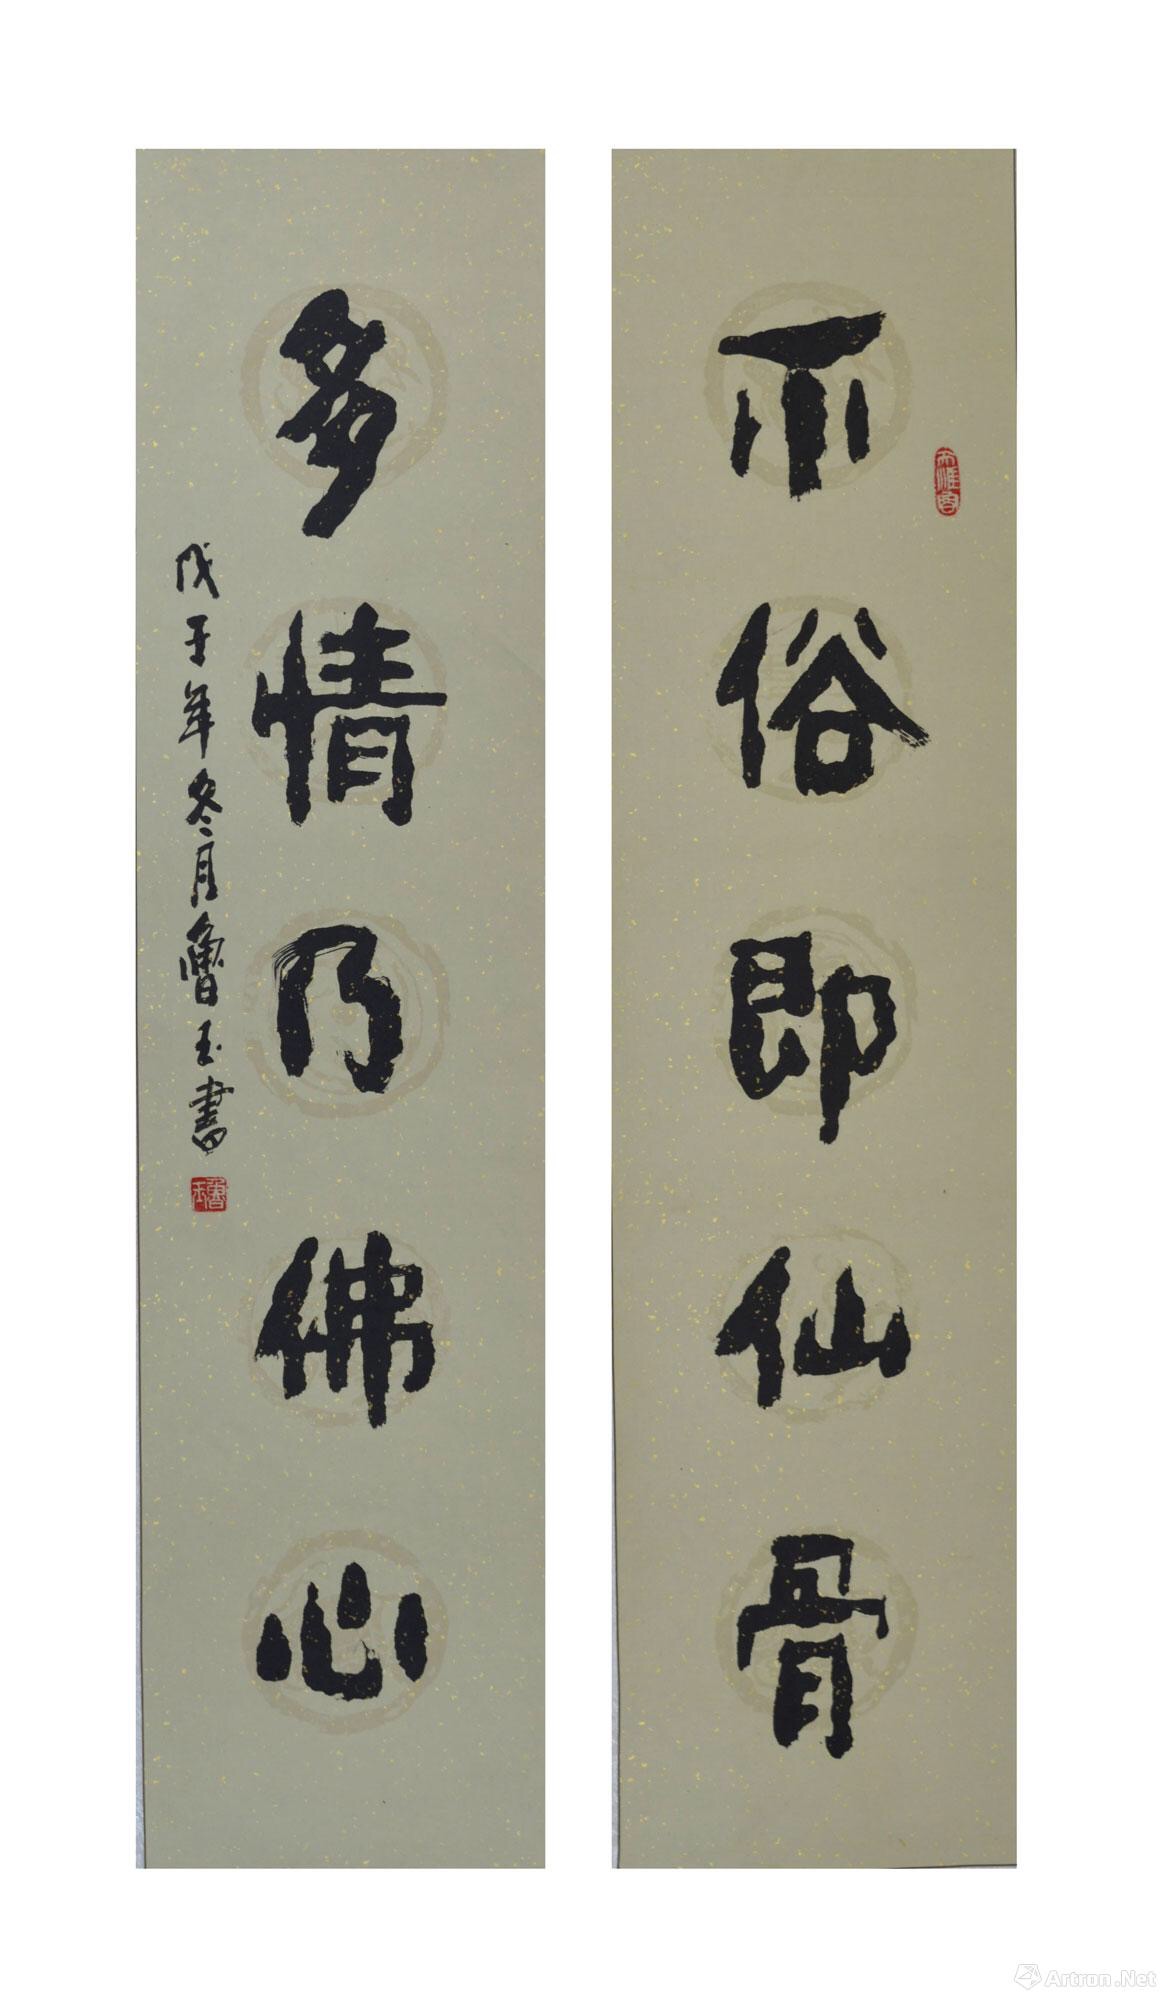 不俗即仙骨
多情乃佛心
戊子年冬月魯玉書
魯玉
Artron.Net